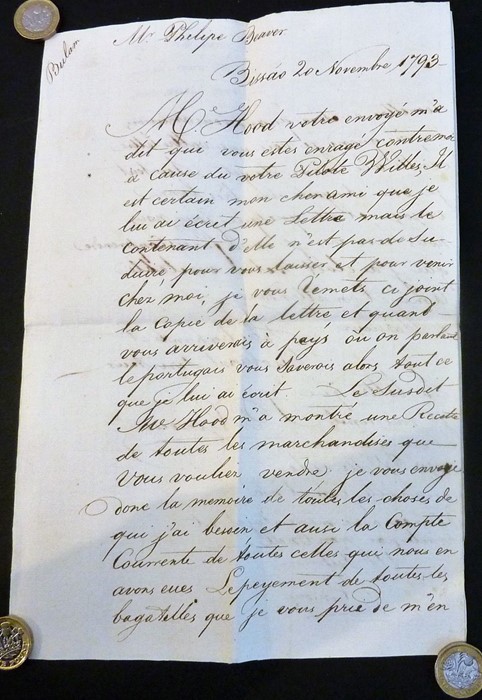 Mr Phelipe Beaver
Bulam
Bissáo 20 Novembre 1793
Mr Hood votre envoyé m'a
dit que vous estes enragé contre moi
a cause du votre Pilote Willes. Il
est certain mon cher ami que je
lui ai écrit une Lettre mais le
contenant d'elle n'est pas de Su-
duire pour vous laisser et pour venir
chez moi, je vous remets ci joint
la Capie de la lettre et quand
vous arriverais à pays où on parlais
le portugais vous Saverois alors tout ce
que je lui ai écrit. Le Susdit
Mr. Hood m'a montré une Recette
de toutes les marchandises que
Vous vouliez vendre, je vous envoye
donc la memoire de toutes les choses de
qui j'ai besoin et ausi la Compte
Courrente de toutes celles qui nous en
avons eues Le peyement de toutes les
bagatelles que je vous prie de m'en